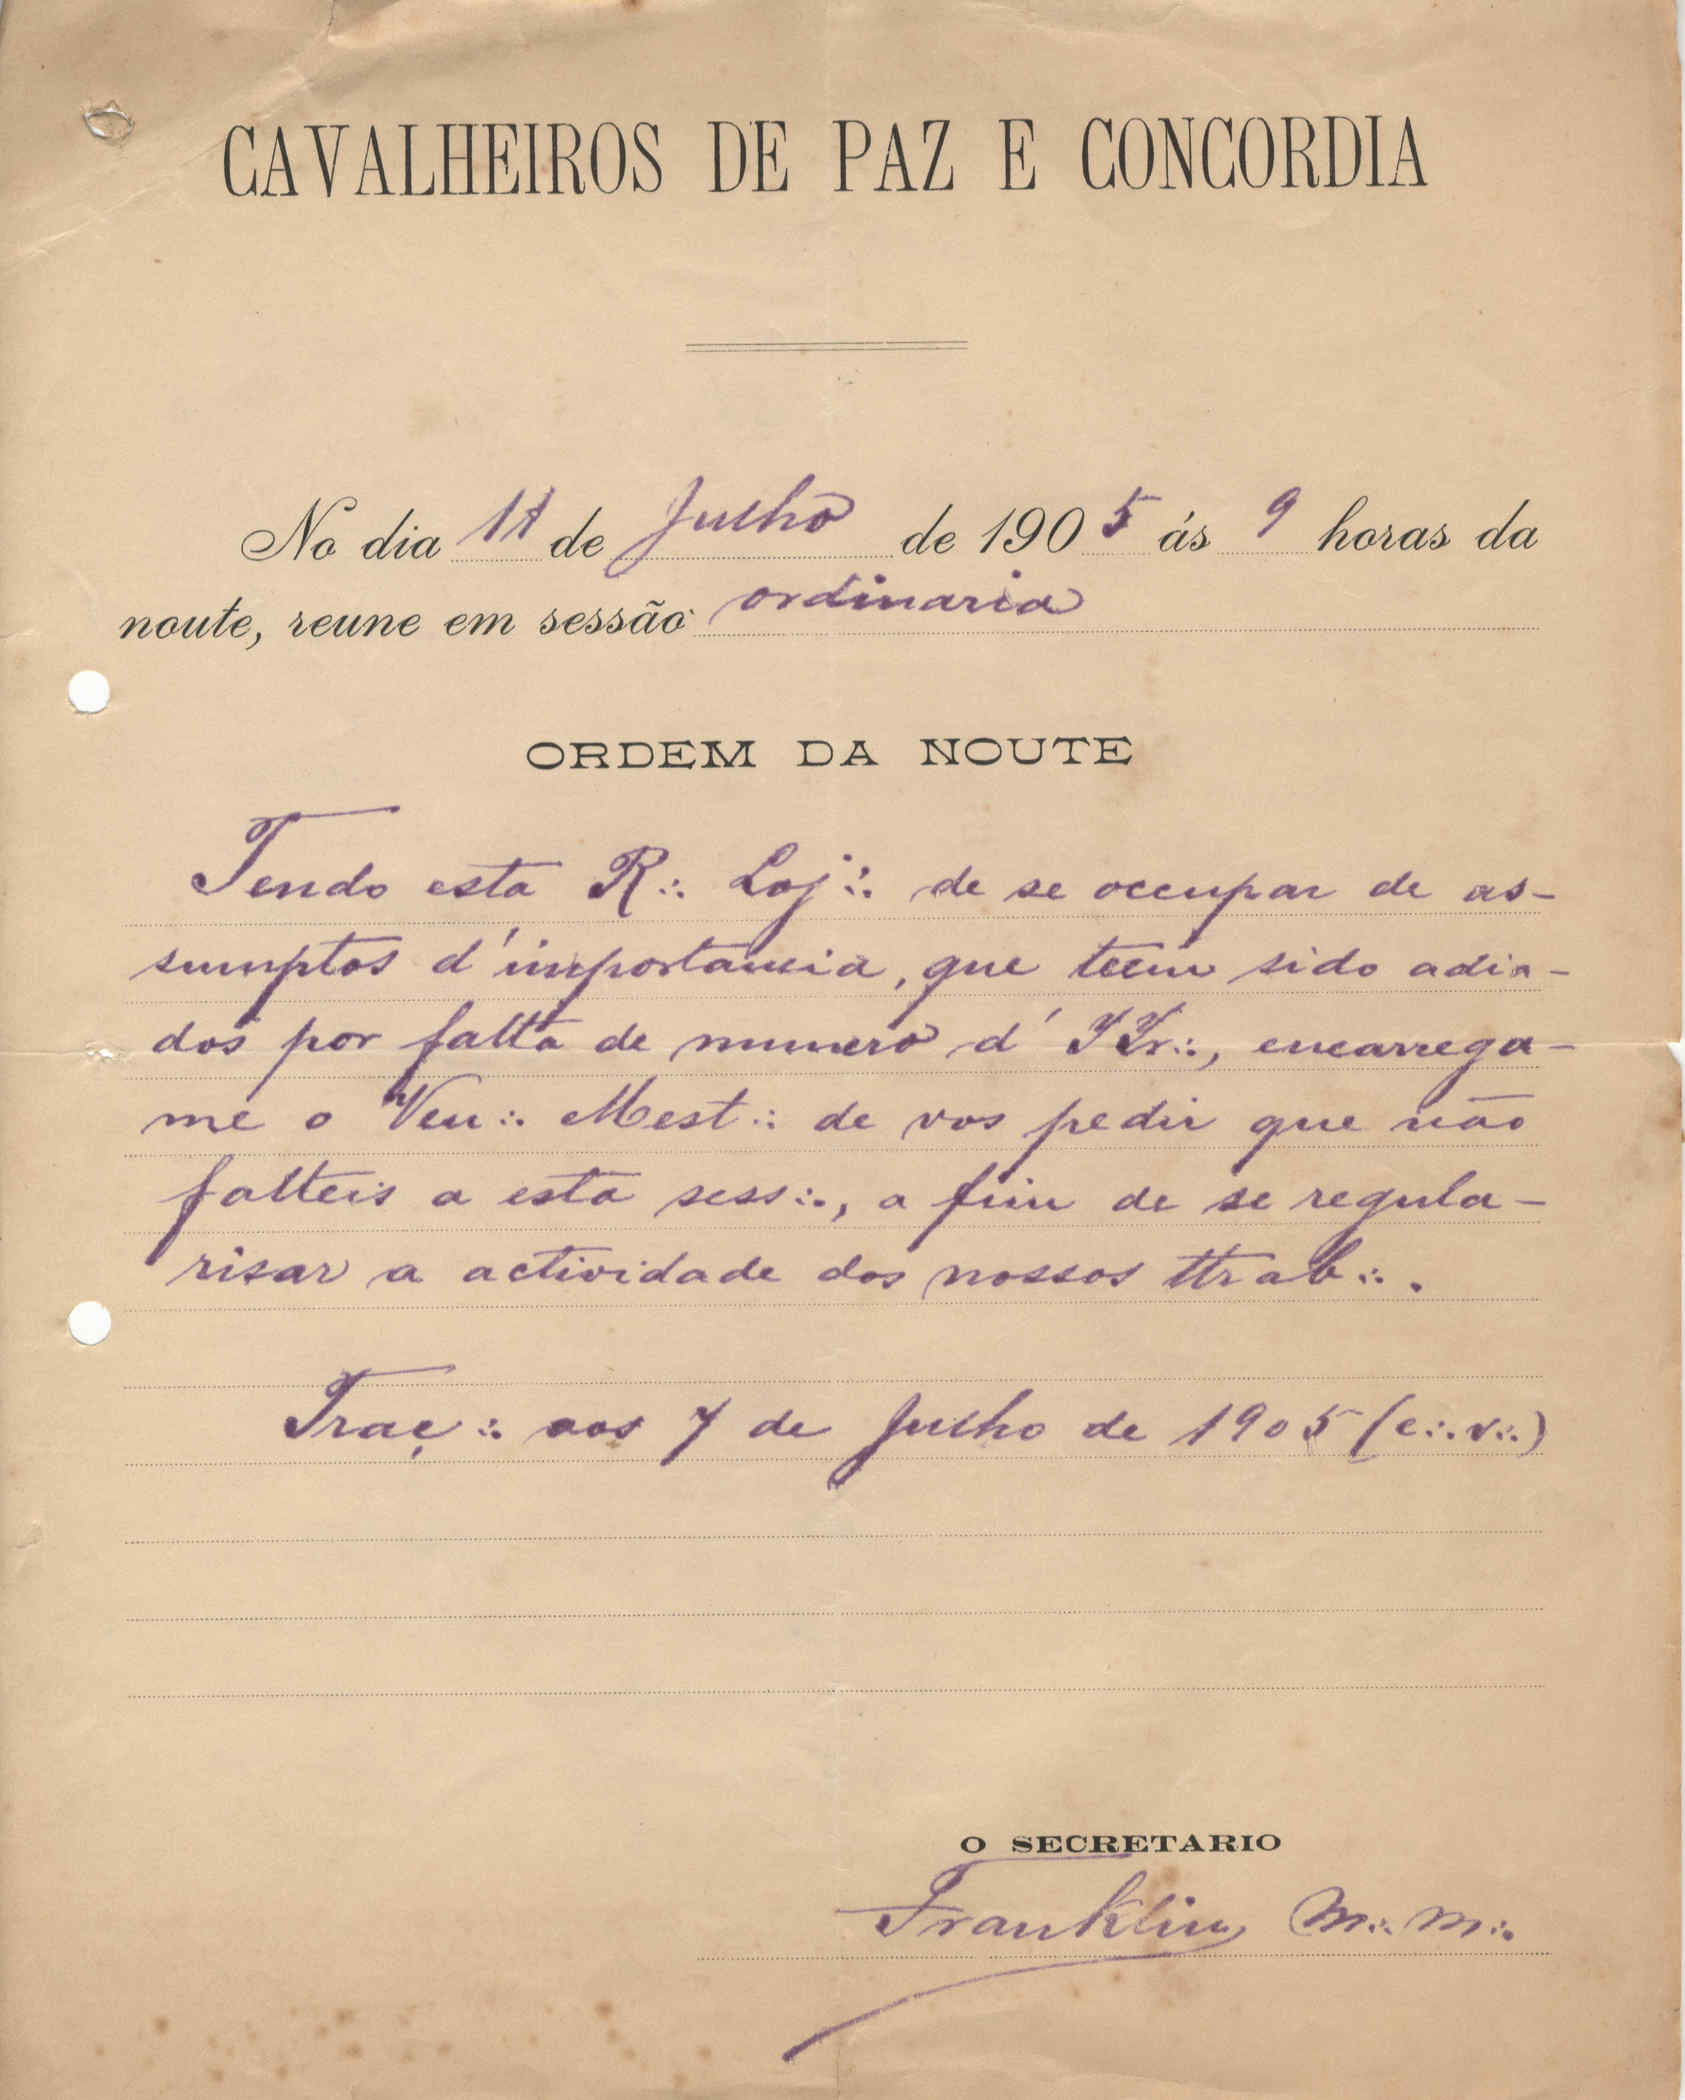 CAVALHEIROS DE PAZ E CONCORDIA
No dia 11 de Julho de 1905 ás 9 horas da
noute, reune em sessão ordinaria
ORDEM DA NOUTE
Tendo esta R∴ Loj∴ de se occupar de as-
sumptos d'importancia, que teem sido adia-
dos por falta de numero d' IIr∴, encarrega-
me o Ven∴ Mest∴ de vos pedir que não
falteis a esta sess∴, a fim de se regula-
risar a actividade dos nossos ttrab∴.
Traç∴ aos 7 de Julho de 1905 (e∴ v∴)
O SECRETARIO
Franklin M∴ M∴